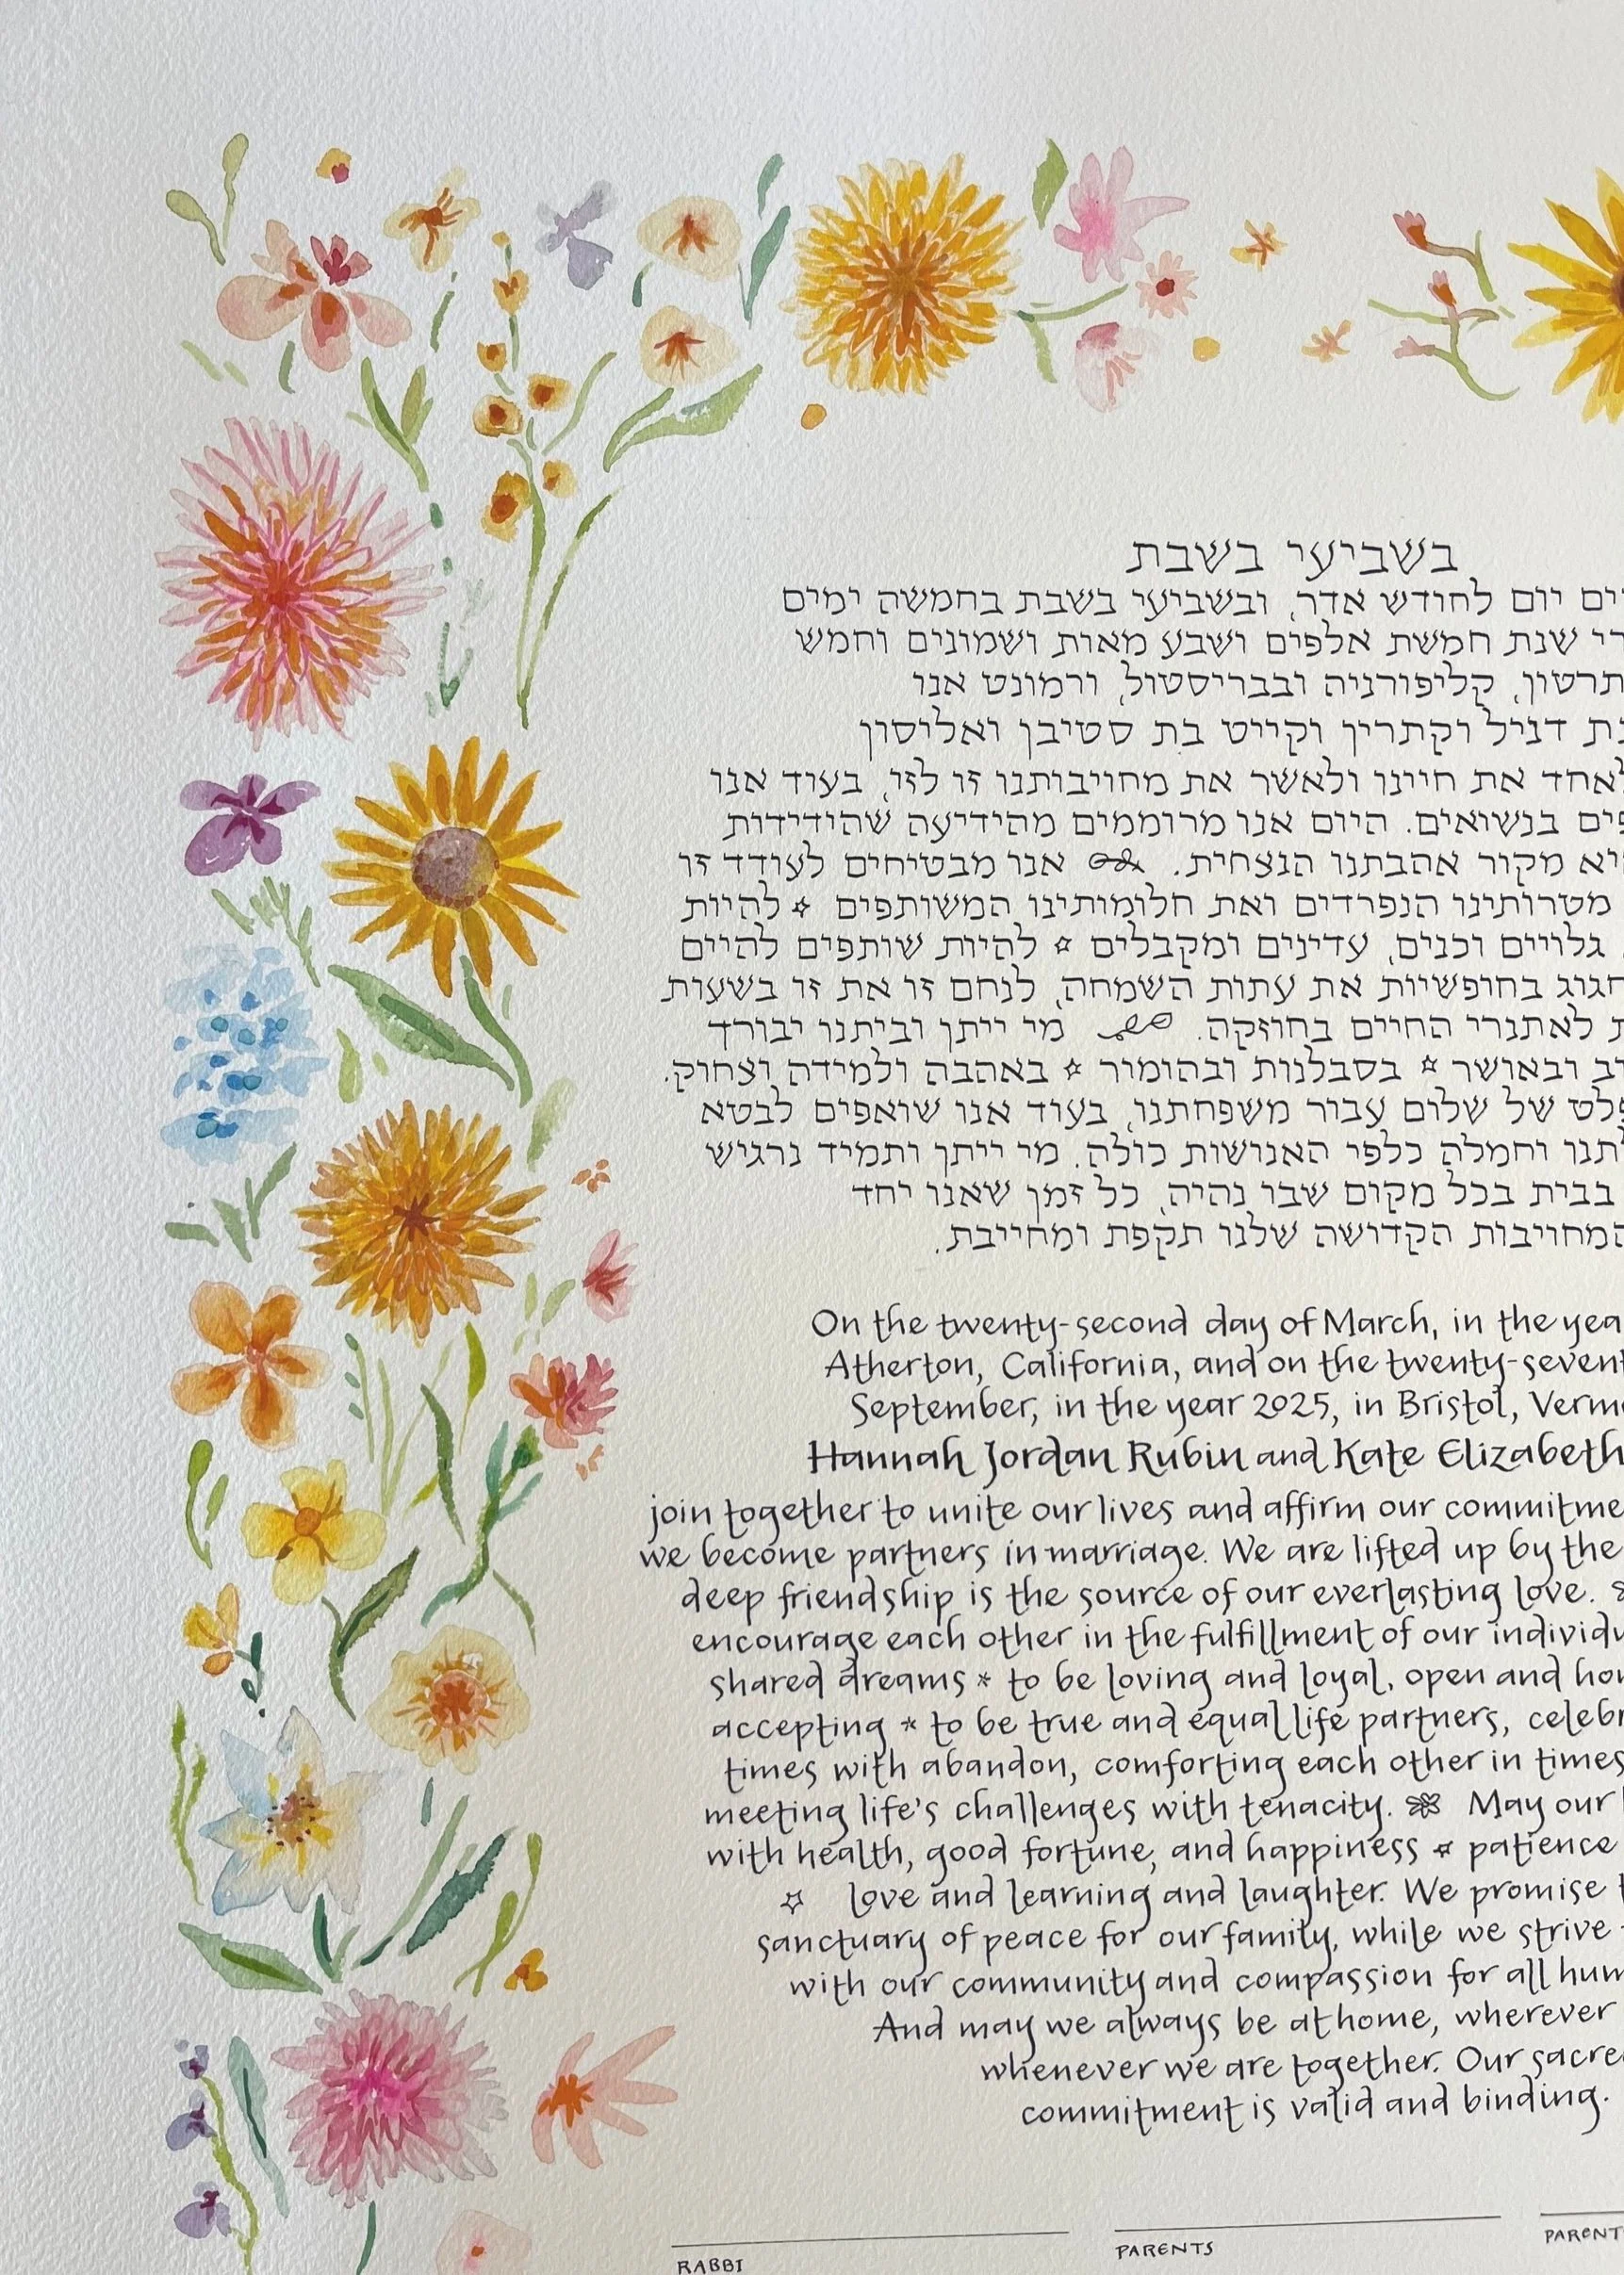 בשביעי בשבת
יום לחודש אדר, ובשביעי בשבת בחמשה ימים
שנת חמשת אלפים ושבע מאות ושמונים וחמש
קליפורניה ובבריסטול, ורמונט אנו
דניל וקתרין וקייט בת סטיבן ואליסון
לאחד את חיינו ולאשר את מחויבותנו זו לזו, בעוד אנו
בנשואים. היום אנו מרוממים מהידיעה שהידידות
מקור אהבתנו הנצחית. אנו מבטיחים לעודד זו
מטרותינו הנפרדים ואת חלומותינו המשותפים * להיות
גלויים וכנים, עדינים ומקבלים * להיות שותפים להיים
בחופשיות את עתות השמחה, לנחם זו את זו בשעות
לאתגרי החיים בחוזקה. מי ייתן וביתנו יבורך
ובאושר * בסבלנות ובהומור * באהבה ולמידה וצחוק.
של שלום עבור משפחתנו, בעוד אנו שואפים לבטא
וחמלה כלפי האנושות כולה. מי ייתן ותמיד נרגיש
בבית בכל מקום שבו נהיה, כל זמן שאנו יחד
המחויבות הקדושה שלנו תקפת ומחייבת.
On the twenty-second day of March, in the yea
Atherton, California, and on the twenty-sevent
September, in the year 2025, in Bristol, Verm
Hannah Jordan Rubin and Kate Elizabeth
join together to unite our lives and affirm our commitme
we become partners in marriage. We are lifted up by the
deep friendship is the source of our everlasting love.
encourage each other in the fulfillment of our individu
shared dreams * to be loving and loyal, open and hon
accepting * to be true and equal life partners, celebr
times with abandon, comforting each other in times
meeting life's challenges with tenacity. May our
with health, good fortune, and happiness * patience
love and learning and laughter. We promise t
sanctuary of peace for our family, while we strive
with our community and compassion for all hum
And may we always be at home, wherever
whenever we are together. Our sacre
commitment is valid and binding.
RABBI
PARENTS
PARENT